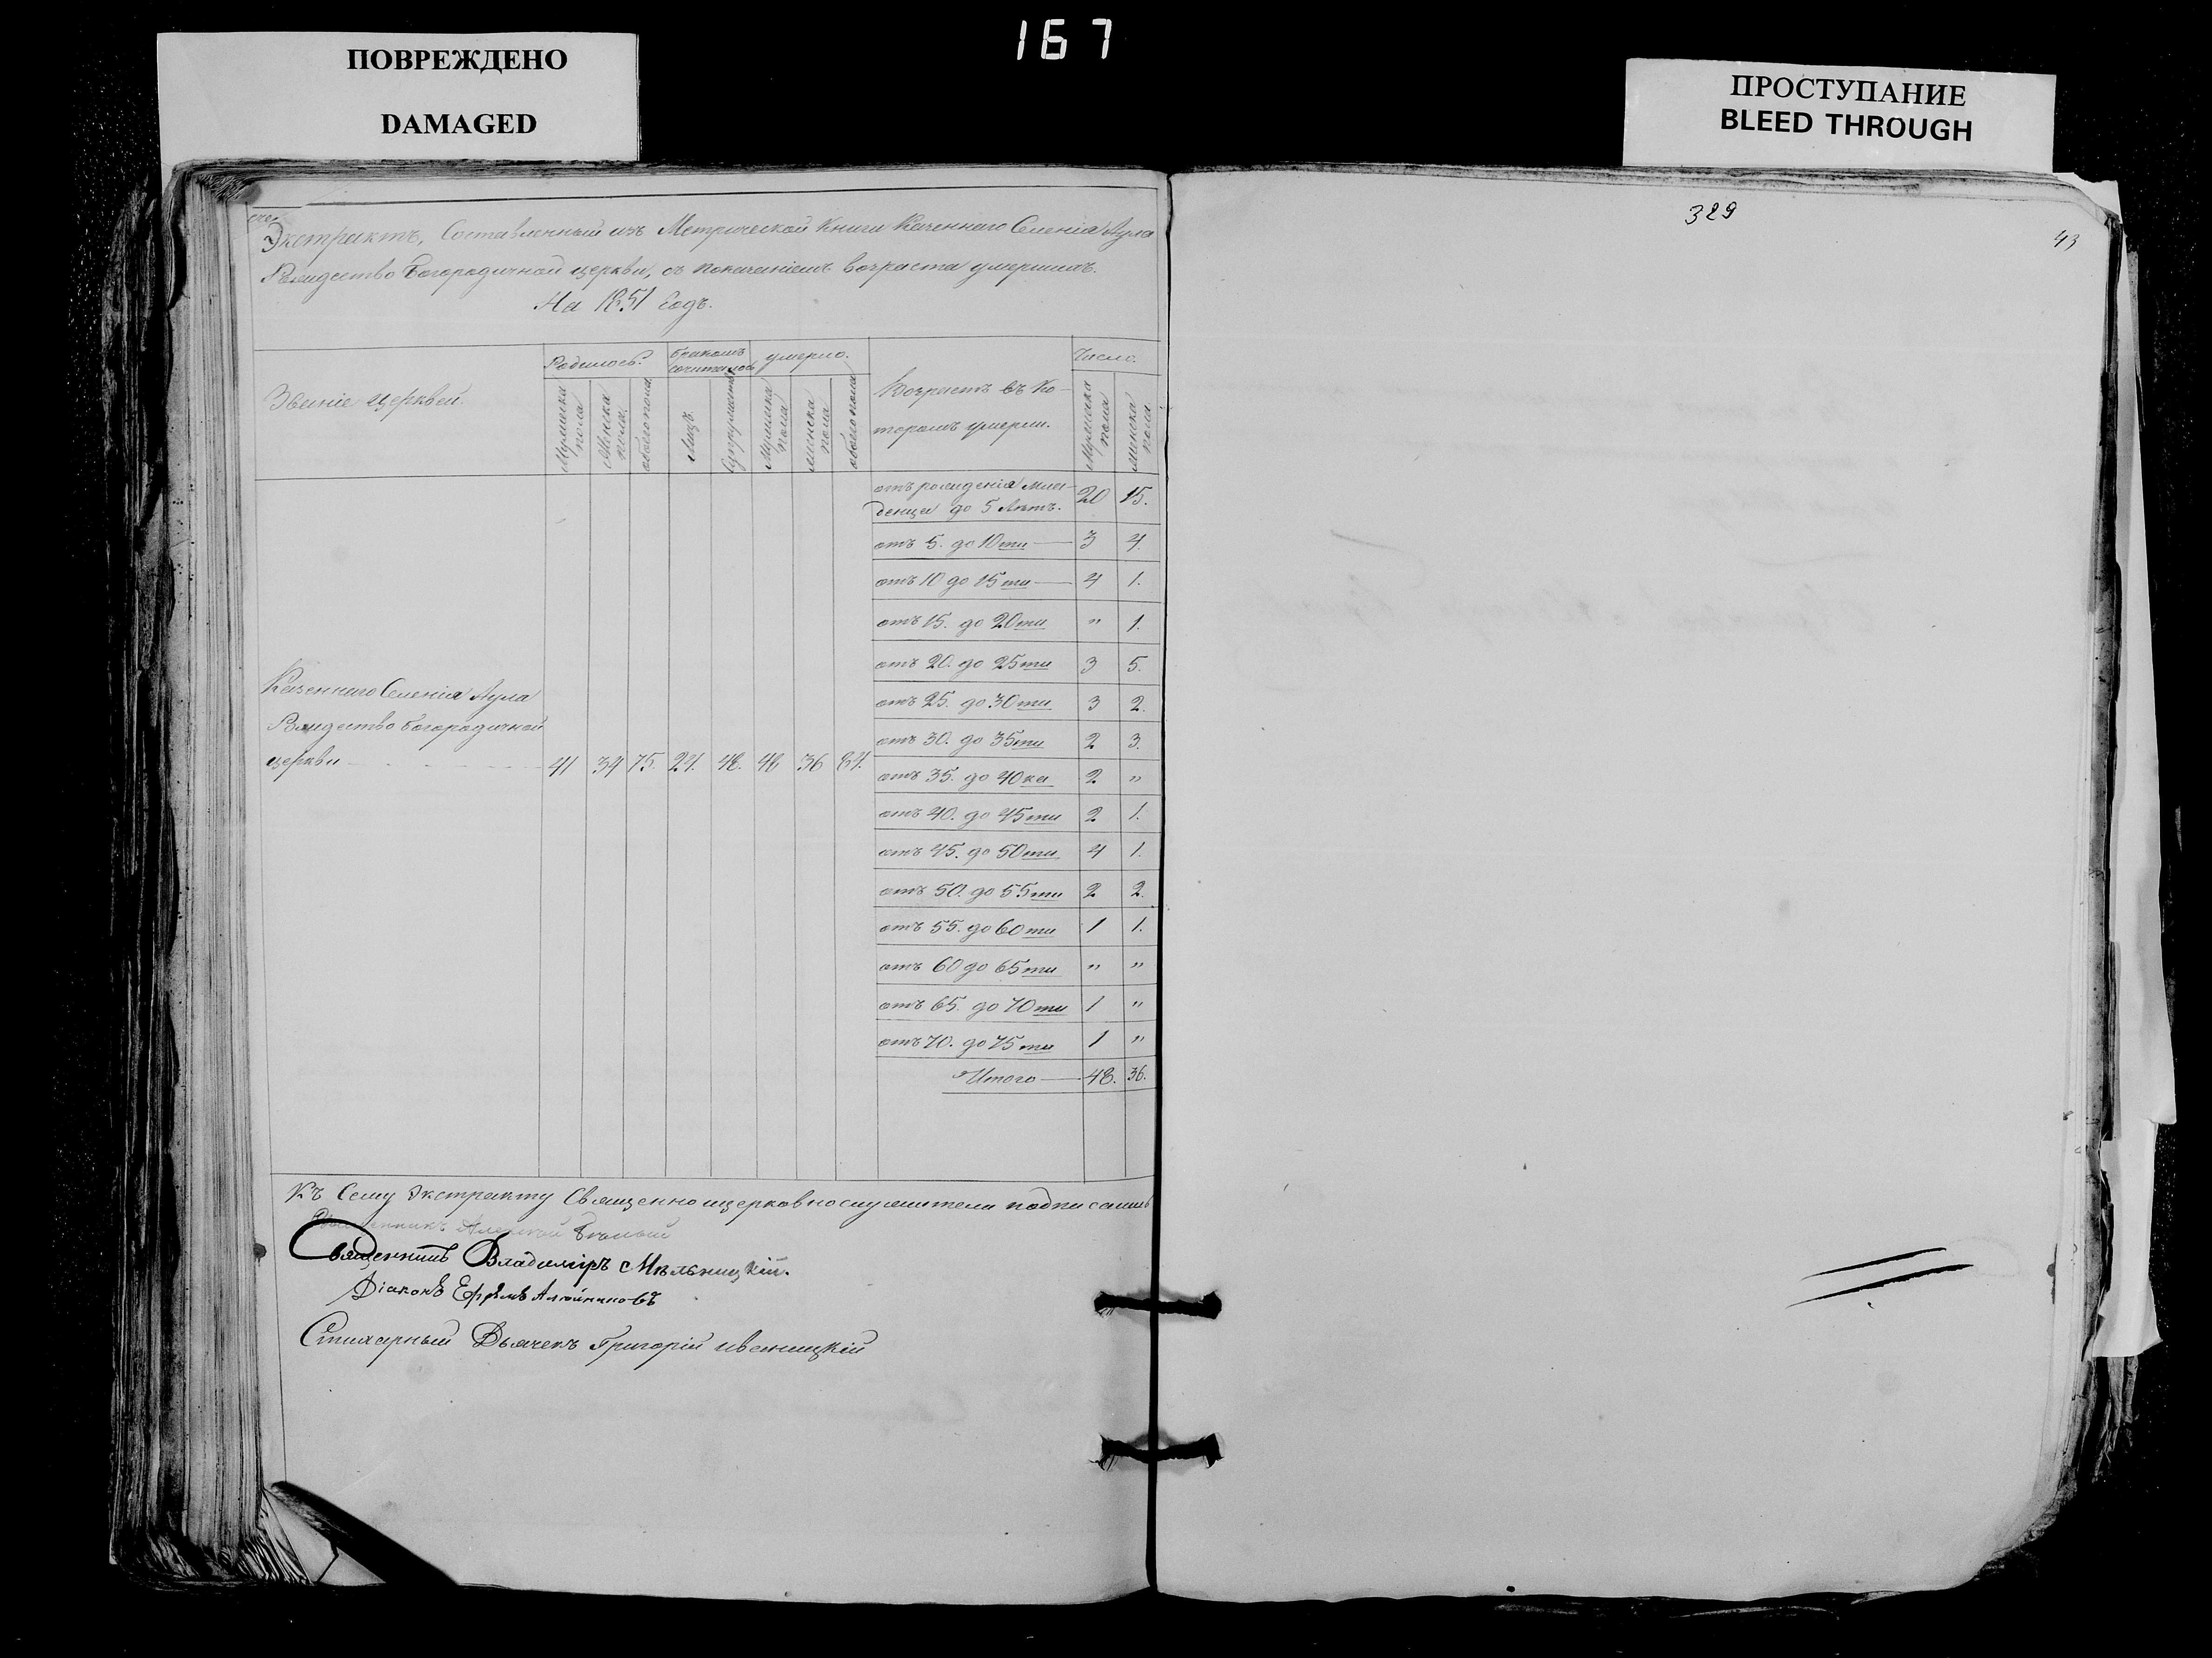 167
ПОВРЕЖДЕНО
DAMAGED
ПРОСТУПАНИЕ
BLEED THROUGH
Экстрактъ, Составленный изъ Метрической Книги Казеннаго Селенія Аула
Рождество Богородичной церкви, съ показаніемъ возраста умершихъ.
На 1851 Годъ.
Званіе церквей.
Родилось.
Бракомъ сочиталось
умерло.
Возрастъ въ Ко-
торомъ умерли.
Число.
Мужеска пола
Женска пола
обоего пола
Лицъ.
Супружествъ
Мужеска пола
женска пола
обоего пола
Мужеска пола
женска пола
отъ рожденія мла-
денца до 5 Лѣтъ. 20 15.
отъ 5. до 10ти — 3 4.
отъ 10 до 15ти — 4 1.
отъ 15. до 20ти " 1.
отъ 20. до 25ти 3 5.
отъ 25. до 30ти 3 2.
отъ 30. до 35ти 2 3.
отъ 35. до 40ка 2 "
отъ 40. до 45ти 2 1.
отъ 45. до 50ти 4 1.
отъ 50. до 55ти 2 2.
отъ 55. до 60ти 1 1.
отъ 60 до 65ти " "
отъ 65. до 70ти 1 "
отъ 70. до 75ти 1 "
Итого — 48. 36.
Казеннаго Селенія Аула
Рождество Богородичной
церкви 41 34 75. 24. 48. 48 36 84.
Къ Сему Экстракту Священноцерковнослужители подписались
Священникъ
Священникъ Владиміръ Мѣльницкій.
Діаконъ Ефремъ
Стихарный Дьячекъ Григорій
329
43